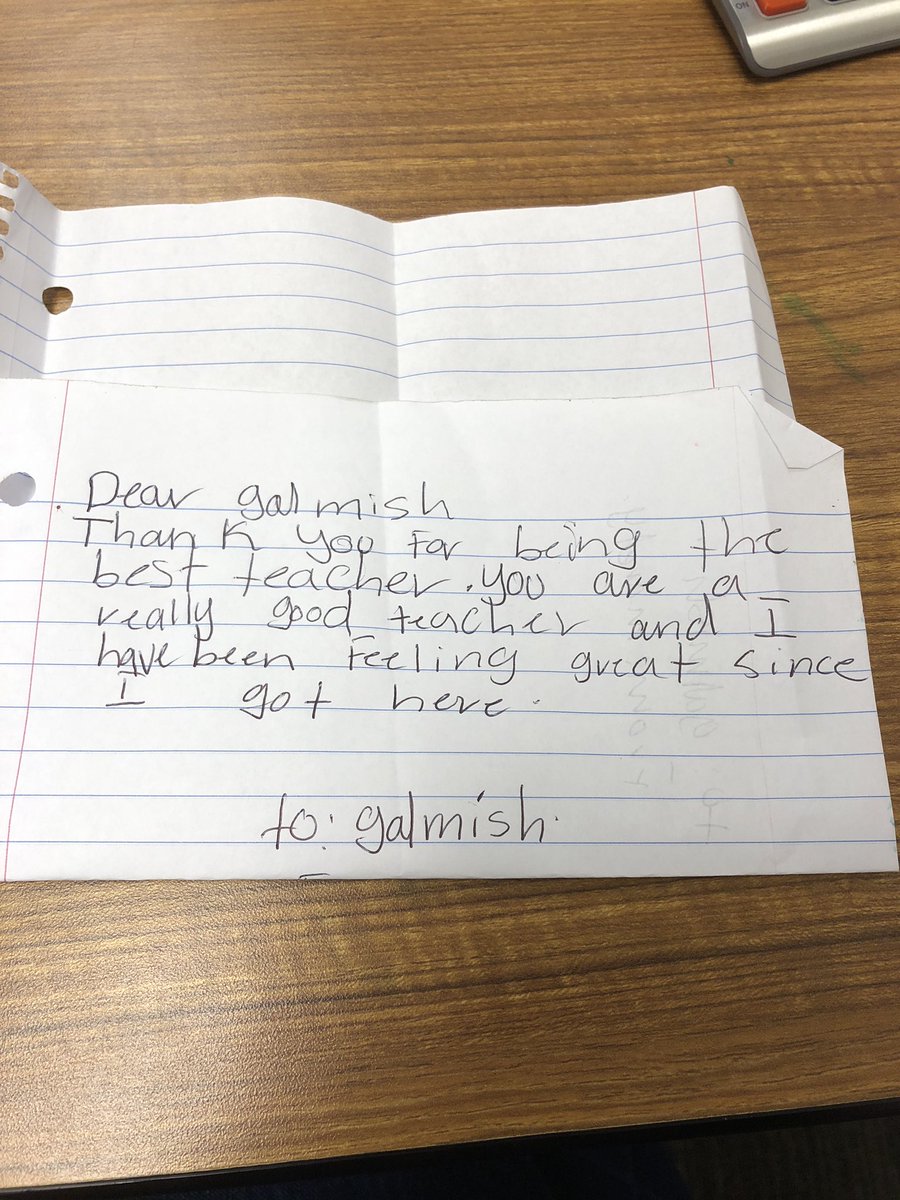 ON
Dear galmish
Thank you for being the
best teacher. you are a
really good teacher and I
have been feeling great since
I got here.
to: galmish.